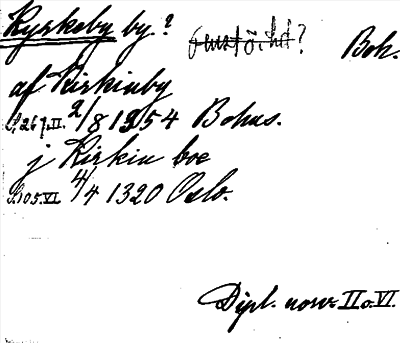 Kyrkeby by? Boh.
af Kirkinby
S. 267. II. 2/8 1354 Bohus.
j Kirkiu boe
S. 105. VI. 4/4 1320 Oslo.
Dipl. norv. II o. VI.